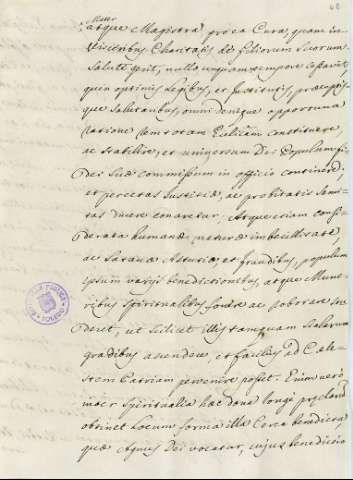 Mater
atque Magistra pro ea Cura, quam in
visceribus Charitatis de Filiorum Suorum
Salute gerit, nullo unquam tempore cessavit,
quin optimis Legibus, et Institutis, præceptis
que Salutaribus, omni denique opportuna
ratione Ecclesiam constituere,
ac Stabilire, et universum Dei Populum fi
dei Suæ commissum in officio contineret,
et per rectas Justitiæ, ac probitatis Semi
tas ducere conaretur. Atque etiam consi
derata humanæ naturæ imbecillitate,
ac Satanæ Astutia, et fraudibus, populum
ipsum varijs benedictionibus, atque Mune
ribus Spiritualibus fovere ac roborare
deret, ut Scilicet illis tamquam Scalarum
gradibus ascendere, et facilius ad Cæle
stem Patriam pervenire posset. Enim vero
inter Spiritualia hæc dona longe præclarum
obtinet Locum forma illa Cerea benedicta,
quæ Agnus Dei vocatur, cujus benedictio